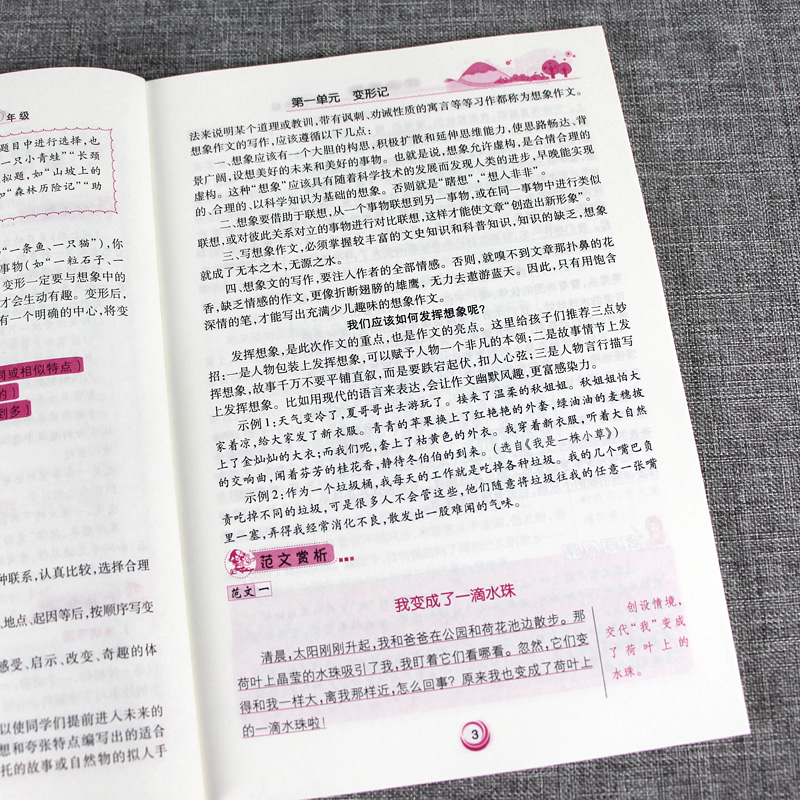 年级
题目中进行选择,也
一只小青蛙”“长颈
拟题,如“山坡上的
如“森林历险记”“助
“一条鱼、一只猫”),你
事物(如“一粒石子、一
变形一定要与想象中的
才会生动有趣。变形后,
有一个明确的中心,将变
同或相似特点)
的)
到多)
种联系,认真比较,选择合理
、地点、起因等后,按顺序写变
感受、启示、改变、奇趣的体
以使同学们提前进入未来的
想和夸张特点编写出的适合
托的故事或自然物的拟人手
第一单元 变形记
法来说明某个道理或教训,带有讽刺、劝诫性质的寓言等等习作都称为想象作文。
想象作文的写作,应该遵循以下几点:
一、想象应该有一个大胆的构思,积极扩散和延伸思维能力,使思路畅达、背
景广阔,设想美好的未来和美好的事物。也就是说,想象允许虚构,是合情合理的
虚构。这种“想象”应该具有随着科学技术的发展而发现人类的进步,早晚能实现
的、合理的、以科学知识为基础的想象。否则就是“瞎想”,“想人非非”。
二、想象要借助于联想,从一个事物联想到另一事物,或在同一事物中进行类似
联想,或对彼此关系对立的事物进行对比联想,这样才能使文章“创造出新形象”。
三、写想象作文,必须掌握较丰富的文史知识和科普知识,知识的缺乏,想象
就成了无本之木,无源之水。
四、想象文的写作,要注入作者的全部情感。否则,就嗅不到文章那扑鼻的花
香,缺乏情感的作文,更像折断翅膀的雄鹰,无力去遨游蓝天。因此,只有用饱含
深情的笔,才能写出充满少儿趣味的想象作文。
我们应该如何发挥想象呢?
发挥想象,是此次作文的重点,也是作文的亮点。这里给孩子们推荐三点妙
招:一是人物包装上发挥想象,可以赋予人物一个非凡的本领;二是故事情节上发
挥想象,故事千万不要平铺直叙,而是要跌宕起伏,扣人心弦;三是人物言行描写
上发挥想象。比如用现代的语言来表达,会让作文幽默风趣,更富感染力。
示例1:天气变冷了,夏哥哥出去游玩了。接来了温柔的秋姐姐。秋姐姐怕大
家着凉,给大家发了新衣服。青青的苹果换上了红艳艳的外套,绿油油的麦穗披
上了金灿灿的大衣;而我们呢,套上了枯黄色的外衣。我穿着新衣服,听着大自然
的交响曲,闻着芬芳的桂花香,静待冬伯伯的到来。(选自《我是一株小草》)
示例2:作为一个垃圾桶,我每天的工作就是吃掉各种垃圾。我的几个嘴巴负
责吃掉不同的垃圾,可是很多人不会管这些,他们随意将垃圾往我的任意一张嘴
里一塞,弄得我经常消化不良,散发出一股难闻的气味。
范文赏析
范文一
我变成了一滴水珠
清晨,太阳刚刚升起,我和爸爸在公园和荷花池边散步。那
荷叶上晶莹的水珠吸引了我,我盯着它们看哪看。忽然,它们变
得和我一样大,离我那样近,怎么回事?原来我也变成了荷叶上
的一滴水珠啦!
创设情境,
交代“我”变成
了荷叶上的
水珠。
3